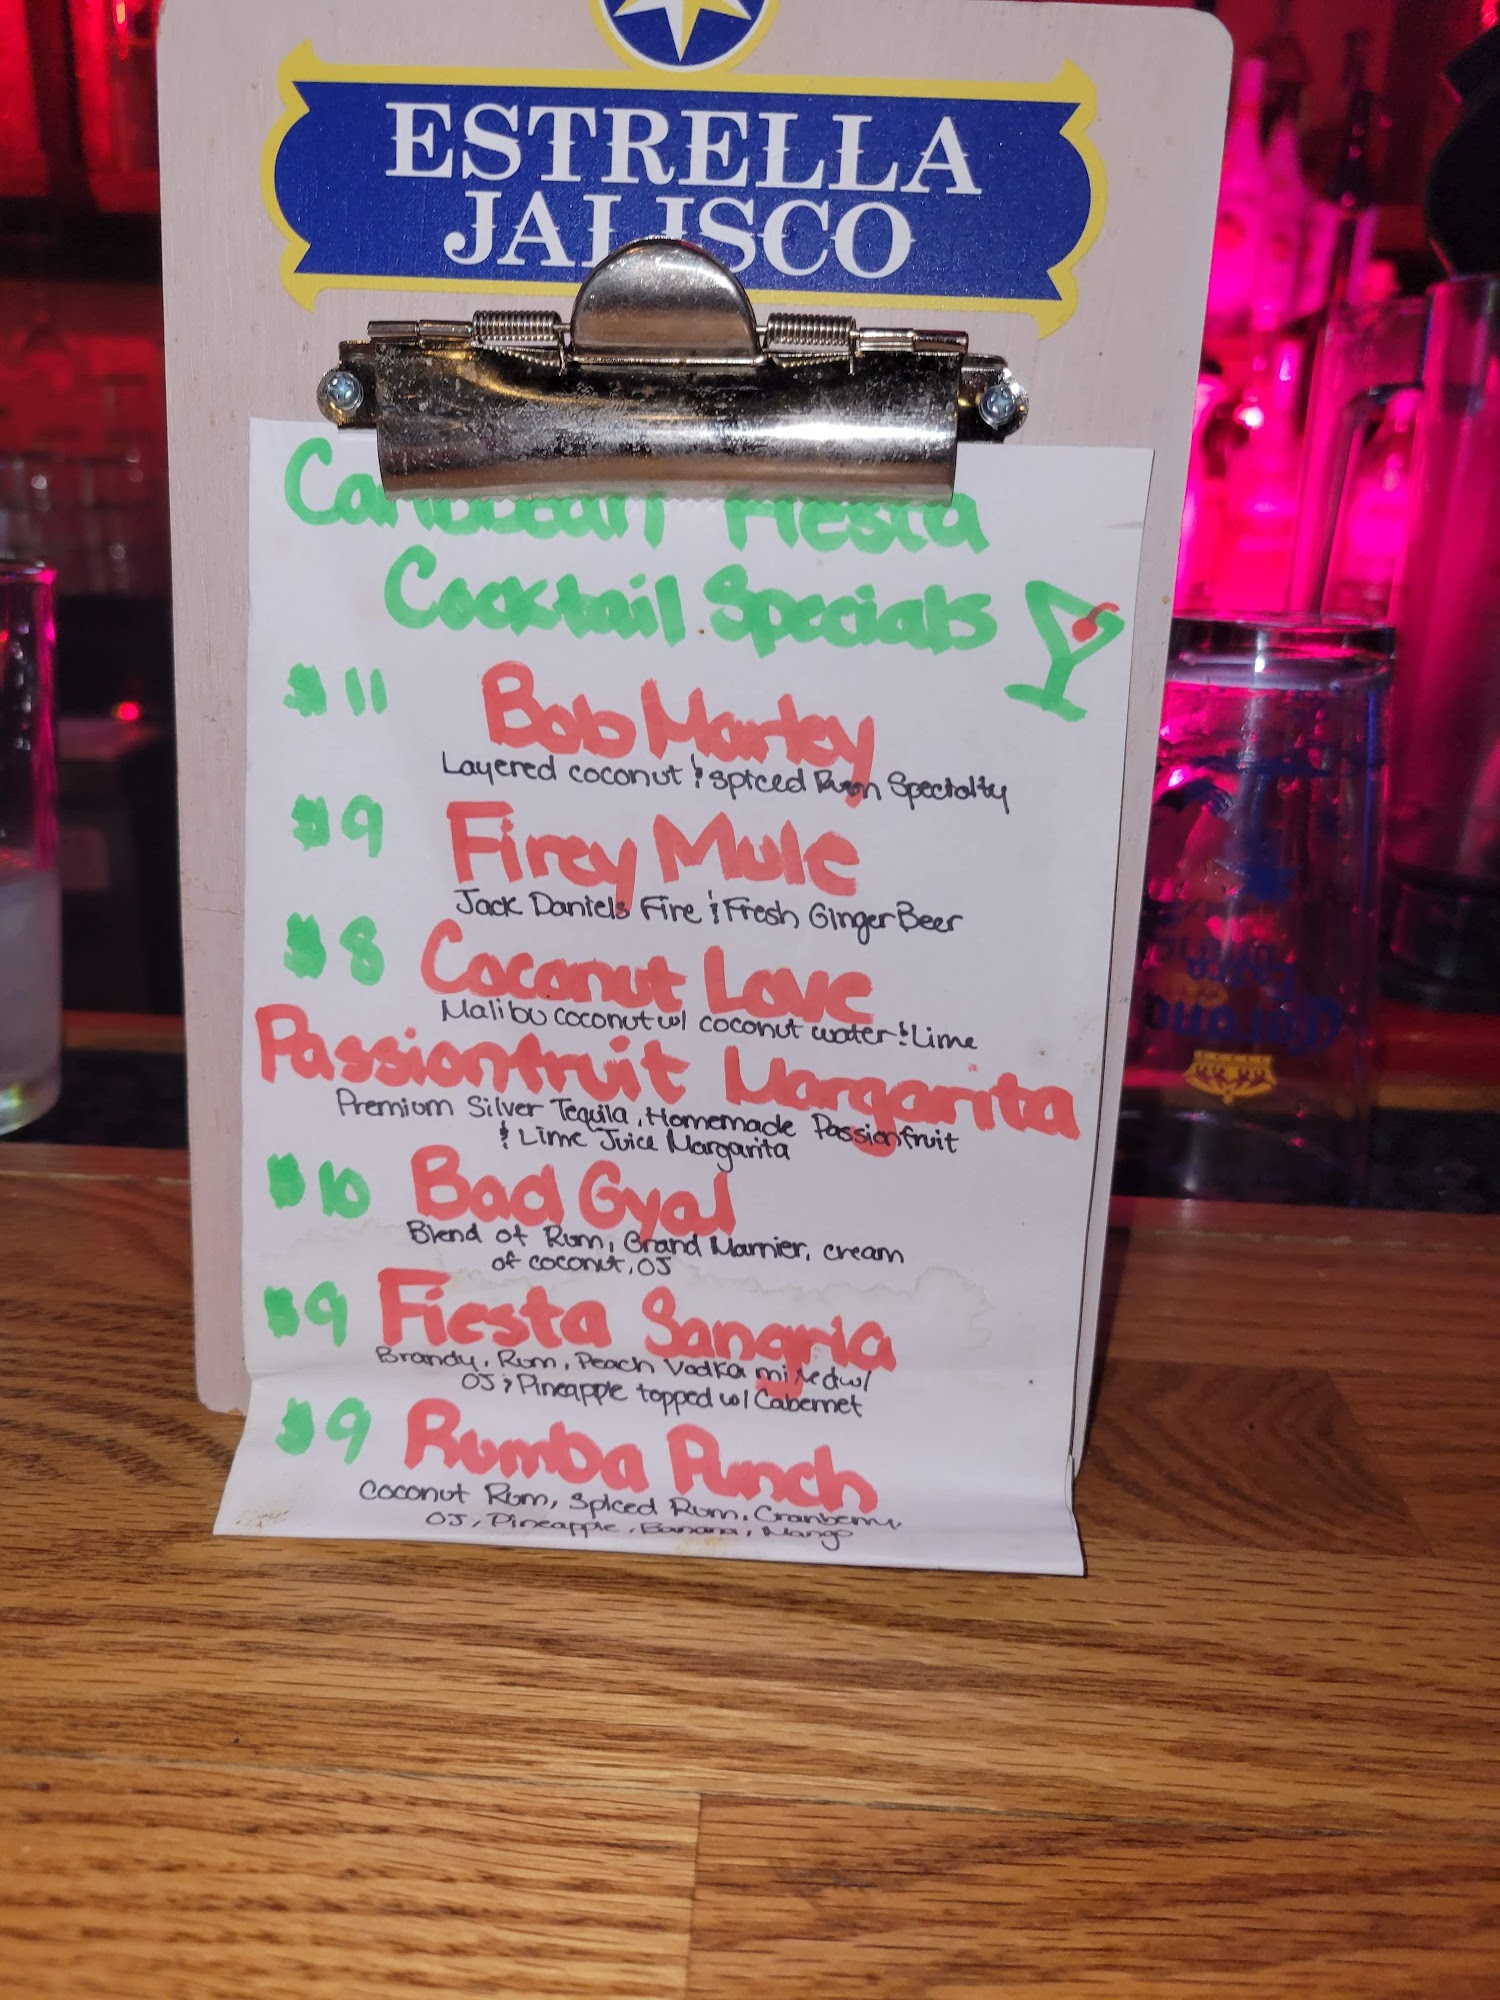 ESTRELLA
JALISCO
Caribbean Fiesta
Cocktail Specials
$11 Bob Marley
Layered coconut & spiced Rum Specialty
$9 Firey Mule
Jack Daniels Fire & Fresh Ginger Beer
$8 Coconut Love
Malibu coconut w/ coconut water & Lime
Passionfruit Margarita
Premium Silver Tequila, Homemade Passionfruit
& Lime Juice Margarita
$10 Bad Gyal
Blend of Rum, Grand Marnier, cream
of coconut, OJ
$9 Fiesta Sangria
Brandy, Rum, Peach Vodka mixed w/
OJ & Pineapple topped w/ Cabernet
$9 Rumba Punch
Coconut Rum, Spiced Rum, Cranberry,
OJ, Pineapple, Banana, Mango
Corona